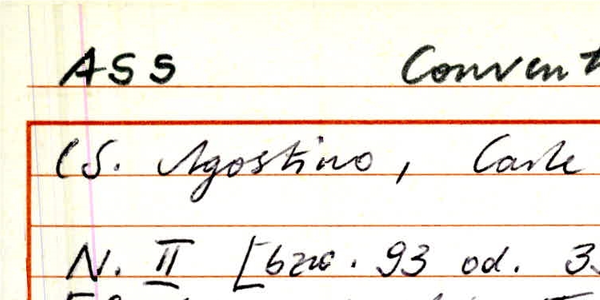 ASS Convent
(S. Agostino, Carte
N. II [bzc. 93 od. 3